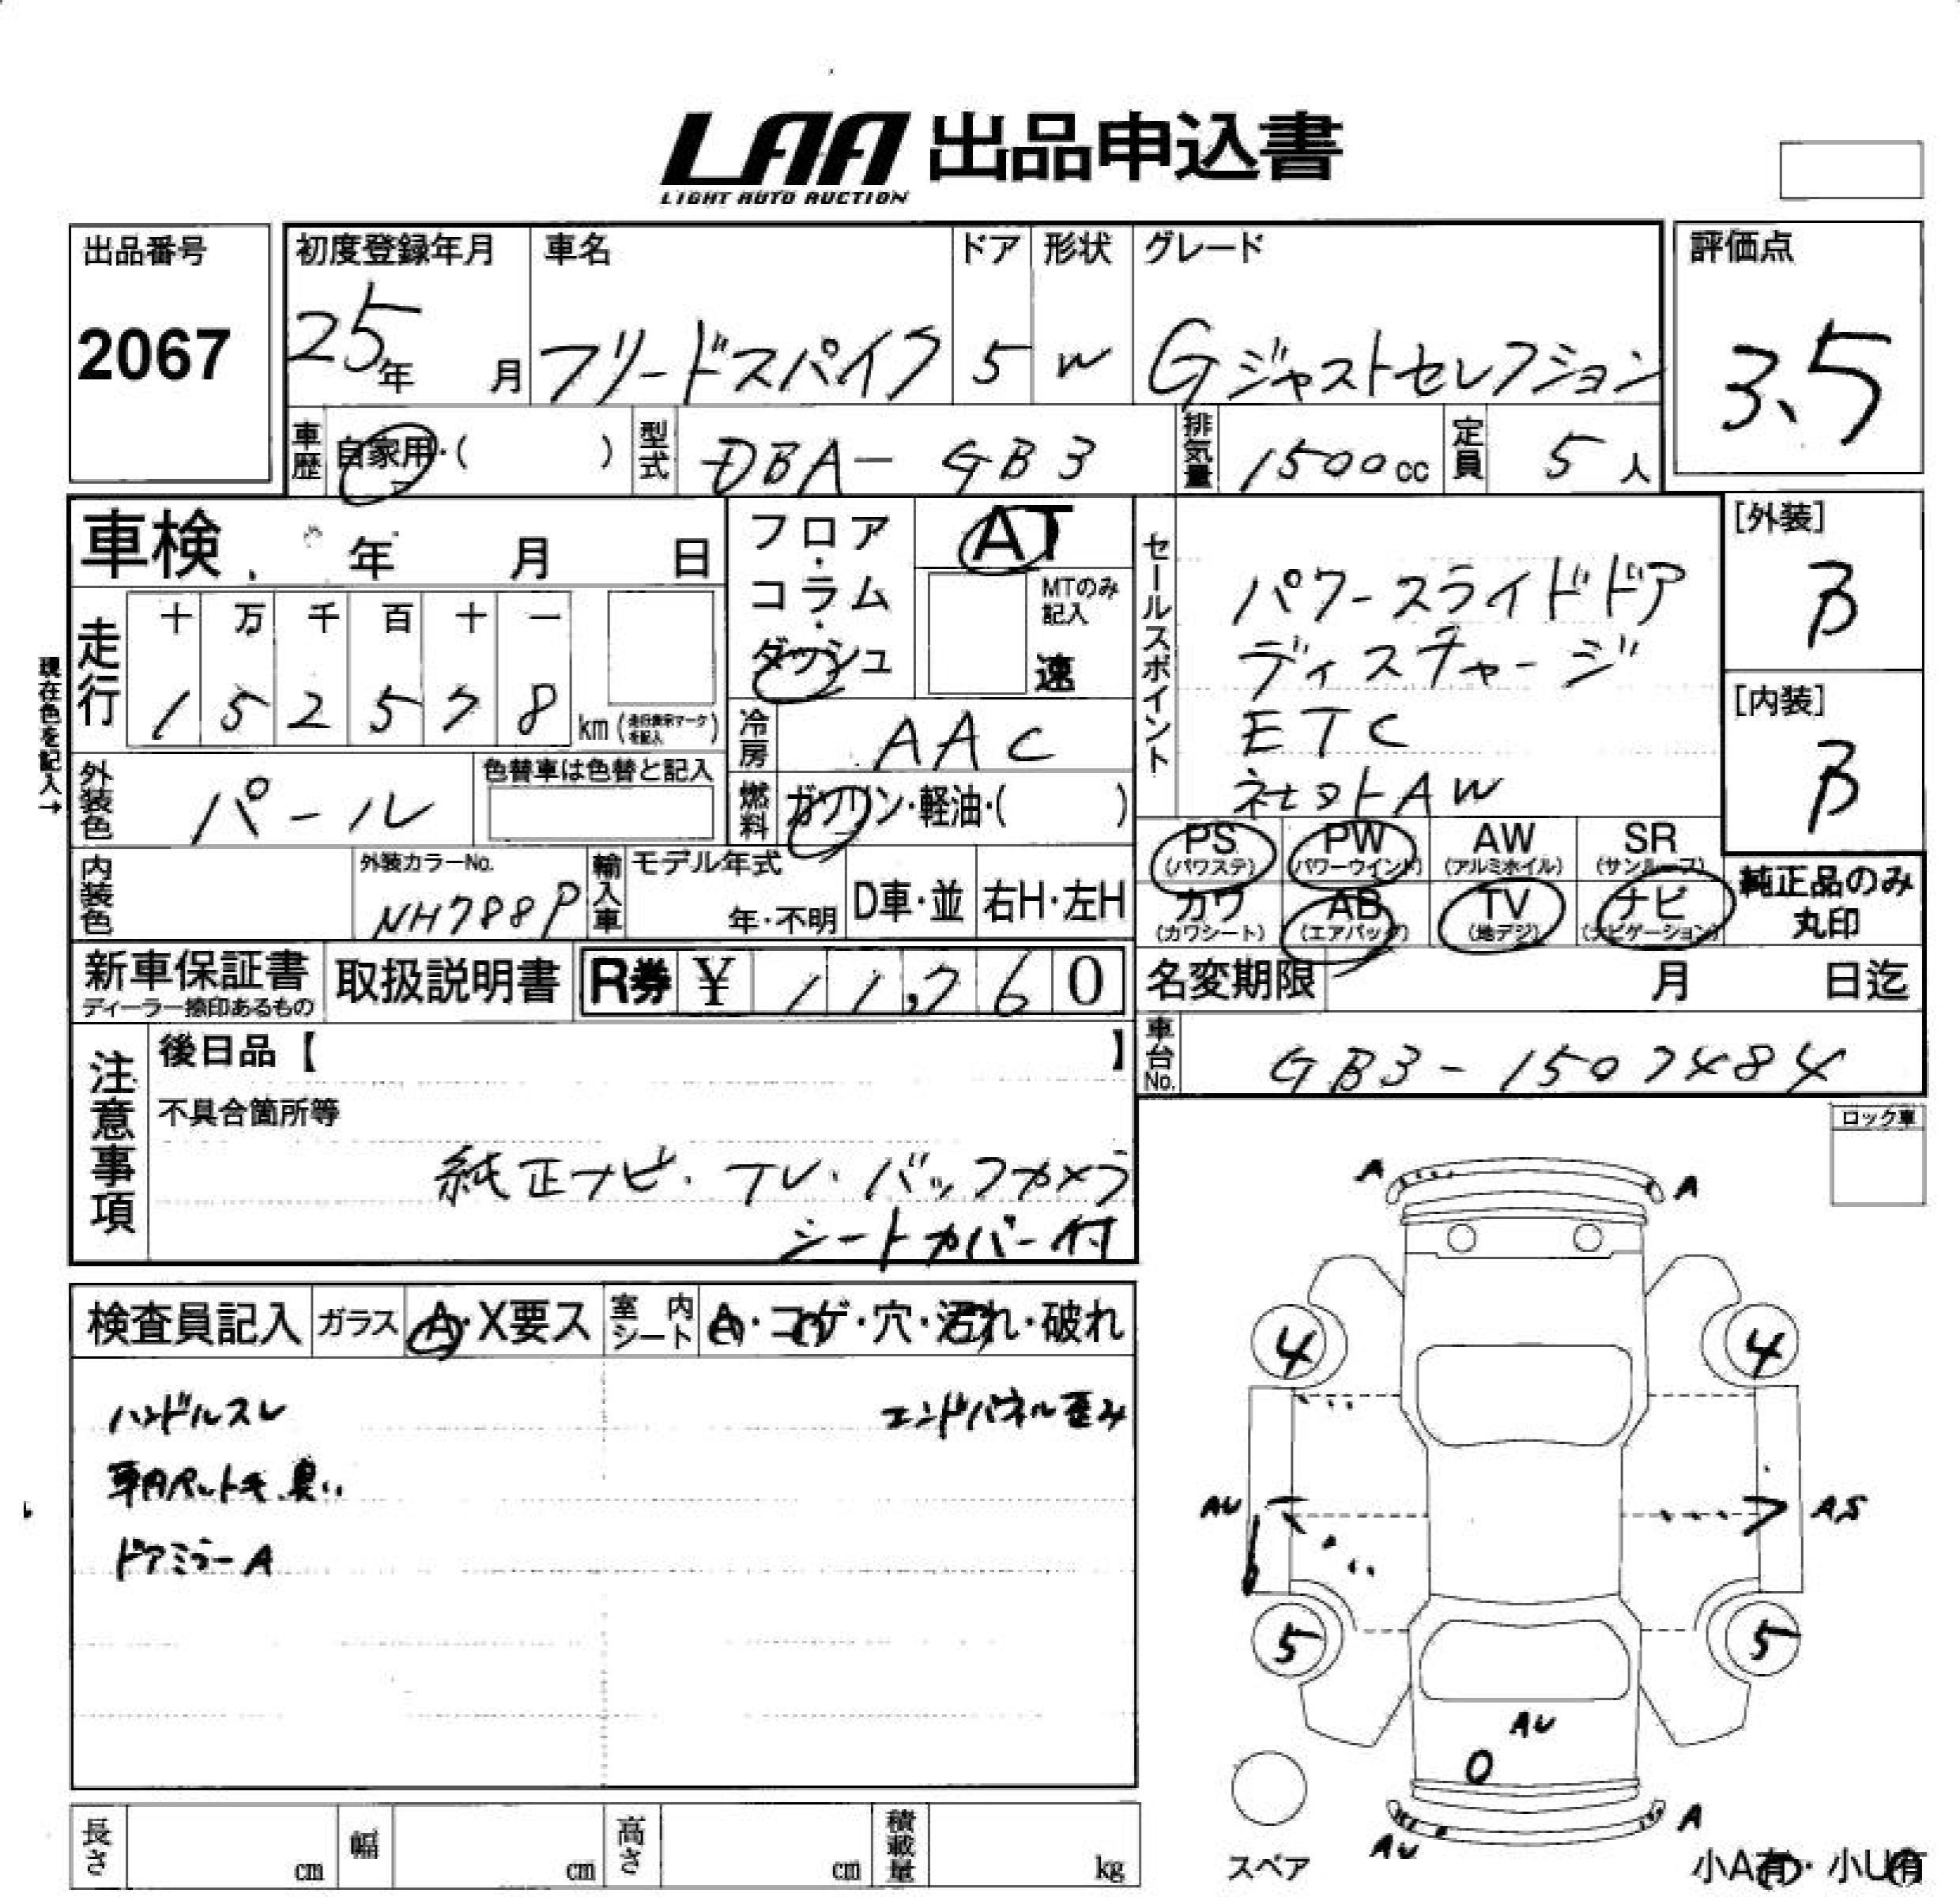 LAA 出品申込書
LIGHT AUTO AUCTION
出品番号
2067
初度登録年月
25年 月
車名
フリードスパイク
ドア
5
形状
W
グレード
Gジャストセレクション
評価点
3.5
車歴 自家用・( )
型式 DBA-GB3
排気量 1500cc
定員 5人
車検 年 月 日
フロア・コラム・ダッシュ
AT
MTのみ記入
速
セールスポイント
パワースライドドア
ディスチャージ
ETC
社外AW
[外装]
B
[内装]
B
現在色を記入→
走行
十 万 千 百 十 一
1 5 2 5 7 8 km (走行表示マークを記入)
冷房 AAC
外装色 パール
色替車は色替と記入
燃料 ガソリン・軽油・( )
PS (パワステ) PW (パワーウインド) AW (アルミホイル) SR (サンルーフ)
カワ (カワシート) AB (エアバッグ) TV (地デジ) ナビ (ナビゲーション)
純正品のみ丸印
内装色
外装カラーNo.
NH788P
輸入車
モデル年式
年・不明
D車・並
右H・左H
新車保証書
ディーラー捺印あるもの
取扱説明書
R券 ¥ 11,760
名変期限 月 日迄
車台No. GB3-1507484
注意事項
後日品【 】
不具合箇所等
純正ナビ・TV・バックカメラ
シートカバー付
ロック車
検査員記入 ガラス A・X要ス 室内シート A・コゲ・穴・汚れ・破れ
ハンドルスレ
エンドパネル歪み
車内ペット毛、臭い
ドアミラーA
A A
4 4
AU AS
5 5
AU
AU A
スペア
小A有・小U有
長さ cm 幅 cm 高さ cm 積載量 kg